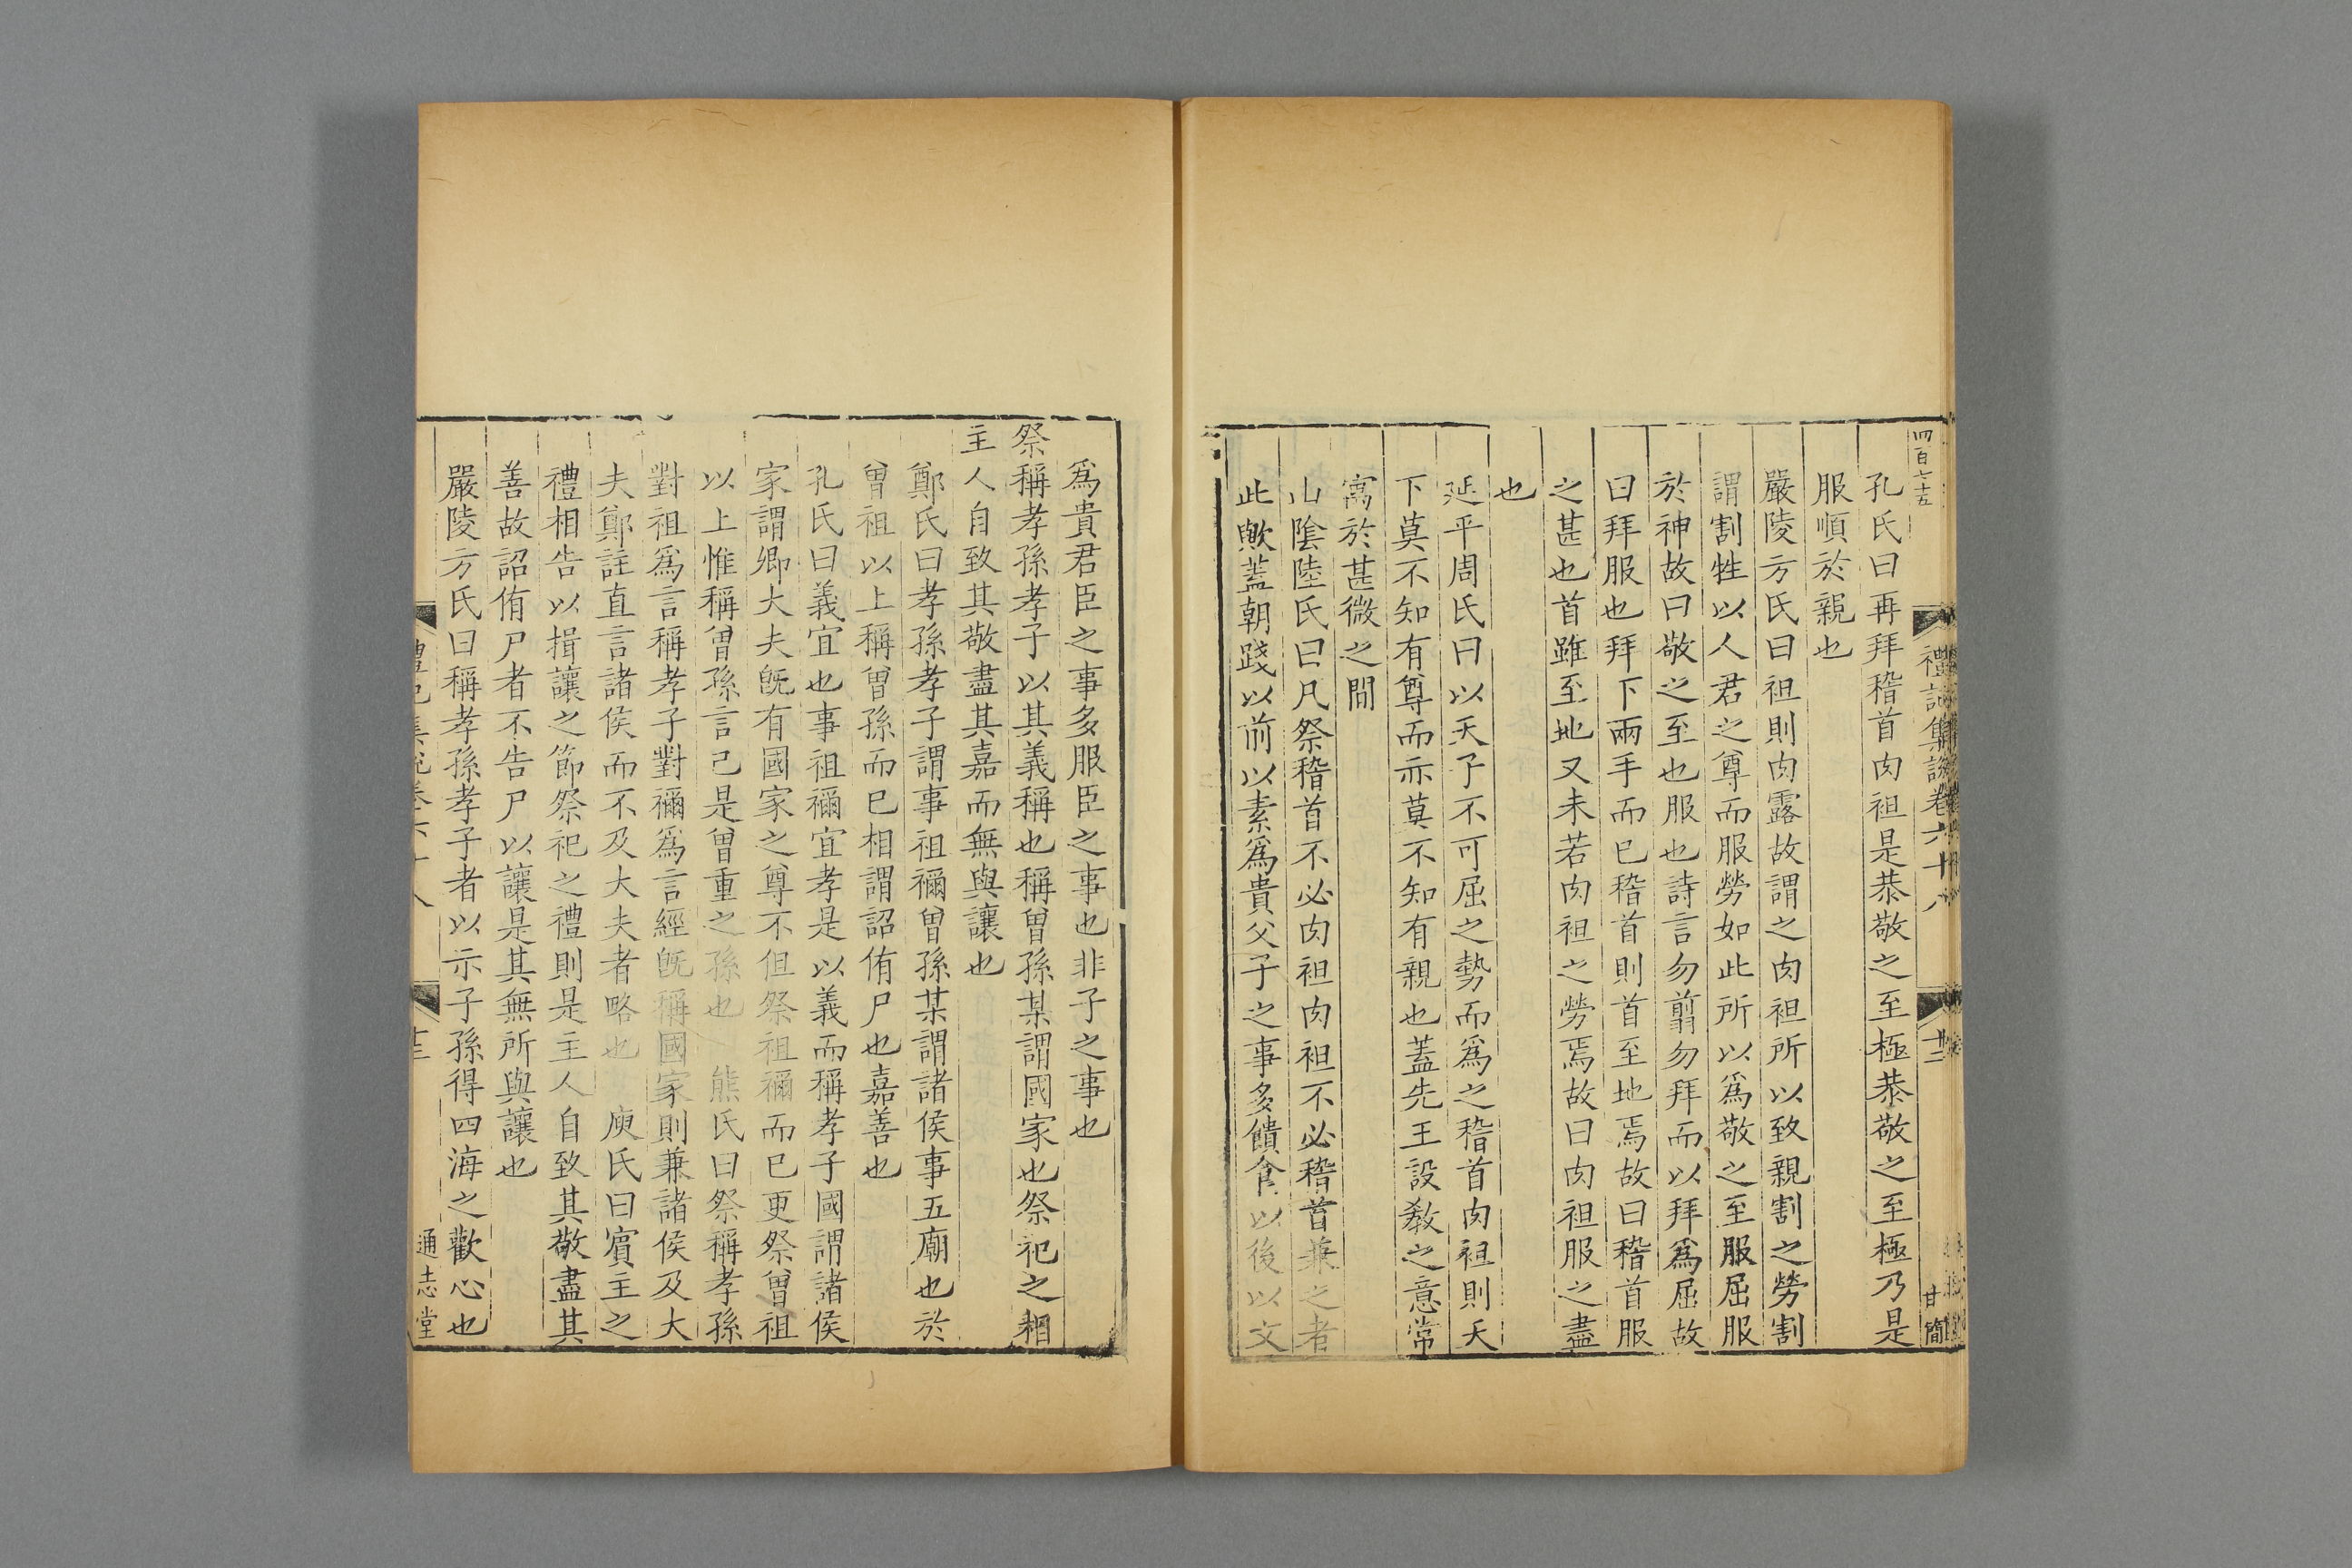 四百七十五
禮記集說卷六十八
十二
甘簡
孔氏曰再拜稽首肉袒是恭敬之至極恭敬之至極乃是
服順於親也
嚴陵方氏曰袒則肉露故謂之肉袒所以致親割之勞割
謂割牲以人君之尊而服勞如此所以爲敬之至服屈服
於神故曰敬之至也服也詩言勿翦勿拜而以拜爲屈故
曰拜服也拜下兩手而已稽首則首至地焉故曰稽首服
之甚也首雖至地又未若肉袒之勞焉故曰肉袒服之盡
也
延平周氏曰以天子不可屈之勢而爲之稽首肉袒則天
下莫不知有尊而亦莫不知有親也蓋先王設敎之意常
寓於甚微之間
山陰陸氏曰凡祭稽首不必肉袒肉袒不必稽首兼之者
此歟蓋朝踐以前以素爲貴父子之事多饋食以後以文
爲貴君臣之事多服臣之事也非子之事也
祭稱孝孫孝子以其義稱也稱曾孫某謂國家也祭祀之相
主人自致其敬盡其嘉而無與讓也
鄭氏曰孝孫孝子謂事祖禰曾孫某謂諸侯事五廟也於
曾祖以上稱曾孫而已相謂詔侑尸也嘉善也
孔氏曰義宜也事祖禰宜孝是以義而稱孝子國謂諸侯
家謂卿大夫旣有國家之尊不但祭祖禰而已更祭曾祖
以上惟稱曾孫言己是曾重之孫也　熊氏曰祭稱孝孫
對祖爲言稱孝子對禰爲言經旣稱國家則兼諸侯及大
夫鄭註直言諸侯而不及大夫者略也　庾氏曰賓主之
禮相告以揖讓之節祭祀之禮則是主人自致其敬盡其
善故詔侑尸者不告尸以讓是其無所與讓也
嚴陵方氏曰稱孝孫孝子者以示子孫得四海之歡心也
禮記集說卷六十八
十三
通志堂